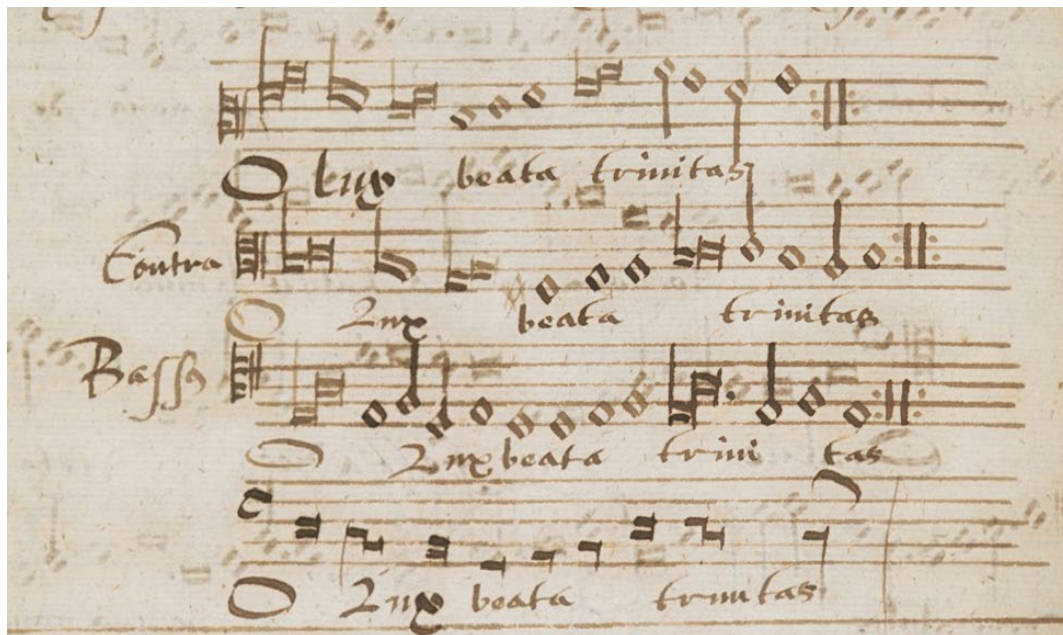 O lux beata trinitas
Contra
O Lux beata trinitas
Bassus
O Lux beata trini tas
O Lux beata trinitas